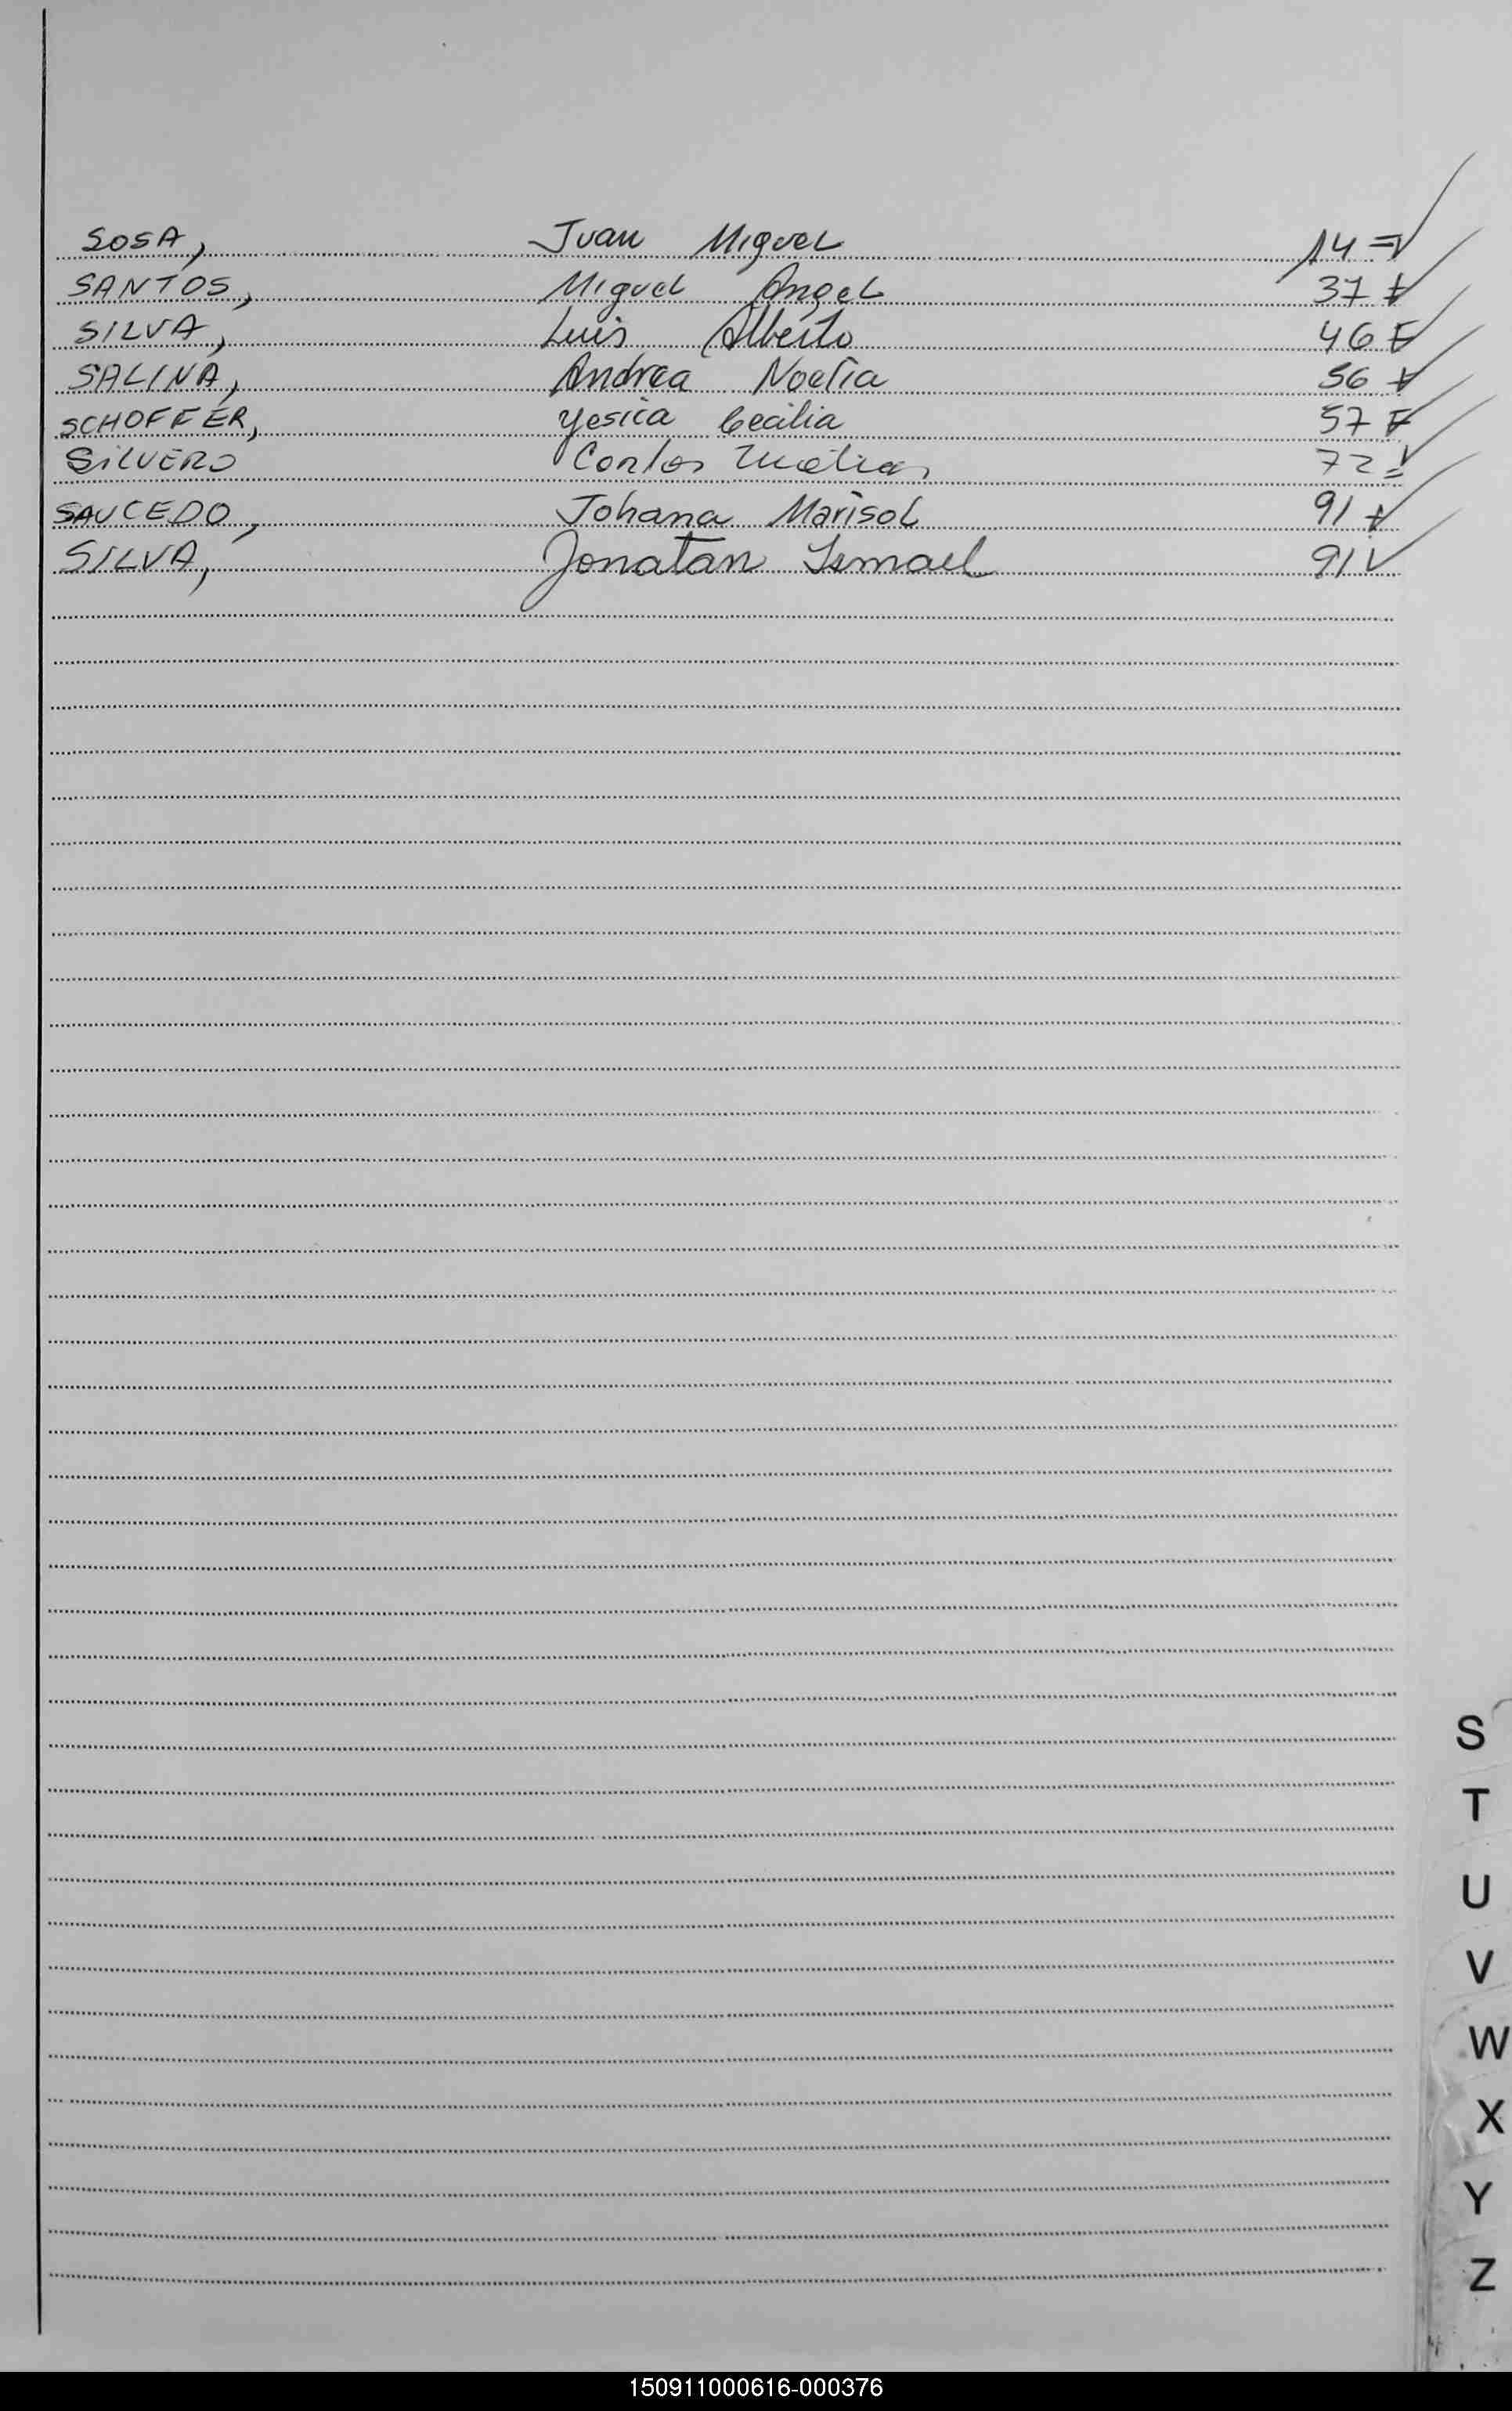 SOSA, Juan Miguel 14 = ✓
SANTOS, Miguel Angel 37 = ✓
SILVA, Luis Alberto 46 = ✓
SALINA, Andrea Noelia 56 = ✓
SCHOFFER, Yesica Cecilia 57 = ✓
SILVERO Carlos Matias 72 = ✓
SAUCEDO, Johana Marisol 91 = ✓
SILVA, Jonatan Ismael 91 ✓
S
T
U
V
W
X
Y
Z
150911000616-000376